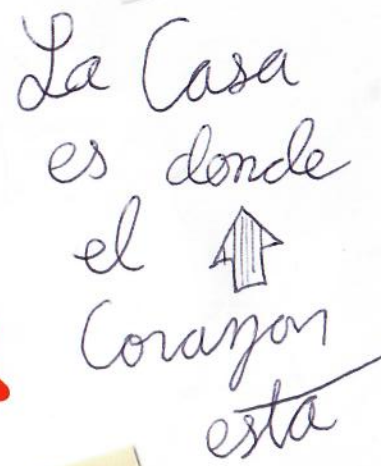 La Casa
es donde
el
Corazon
esta